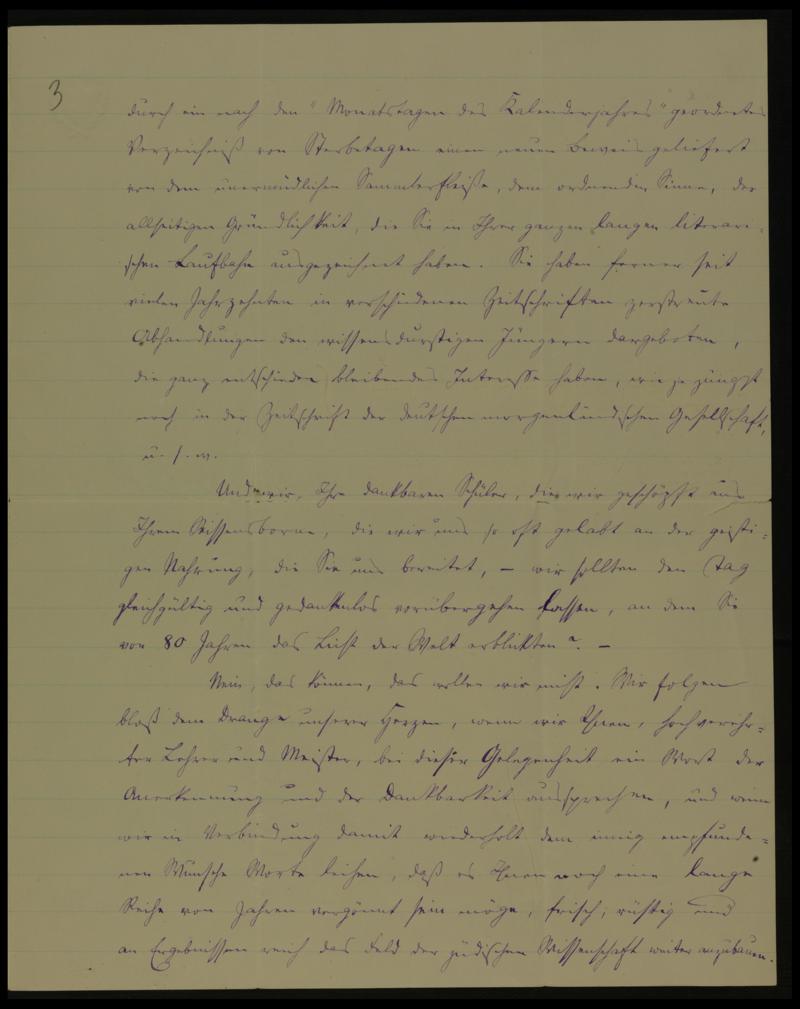 3
durch ein nach den "Monatstagen des Kalenderjahres" geordnetes
Verzeichniß von Sterbetagen einen neuen Beweis geliefert
von dem unermüdlichen Sammlerfleiße, dem ordnenden Sinne, der
allseitigen Gründlichkeit, die Sie in Ihrer ganzen langen literari-
schen Laufbahn ausgezeichnet haben. Sie haben ferner seit
vielen Jahrzehnten in verschiedenen Zeitschriften zerstreute
Abhandlungen den wissensdurstigen Jüngern dargeboten,
die ganz entschieden bleibendes Interesse haben, wie ja jüngst
noch in der Zeitschrift der deutschen morgenländischen Gesellschaft,
u. s. w.
Und wir, Ihre dankbaren Schüler, die wir geschöpft aus
Ihrem Wissensborne, die wir uns so oft gelabt an der geisti-
gen Nahrung, die Sie uns bereitet, – wir sollten den Tag
gleichgültig und gedankenlos vorübergehen lassen, an dem Sie
vor 80 Jahren das Licht der Welt erblickten? –
Nein, das können, das wollen wir nicht. Wir folgen
bloß dem Drange unserer Herzen, wenn wir Ihnen, hochverehr-
ter Lehrer und Meister, bei dieser Gelegenheit ein Wort der
Anerkennung und der Dankbarkeit aussprechen, und wenn
wir in Verbindung damit wiederholt dem innig empfunde-
nen Wunsche Worte leihen, daß es Ihnen noch eine lange
Reihe von Jahren vergönnt sein möge, frisch, rüstig und
an Ergebnissen reich das Feld der jüdischen Wissenschaft weiter anzubauen.